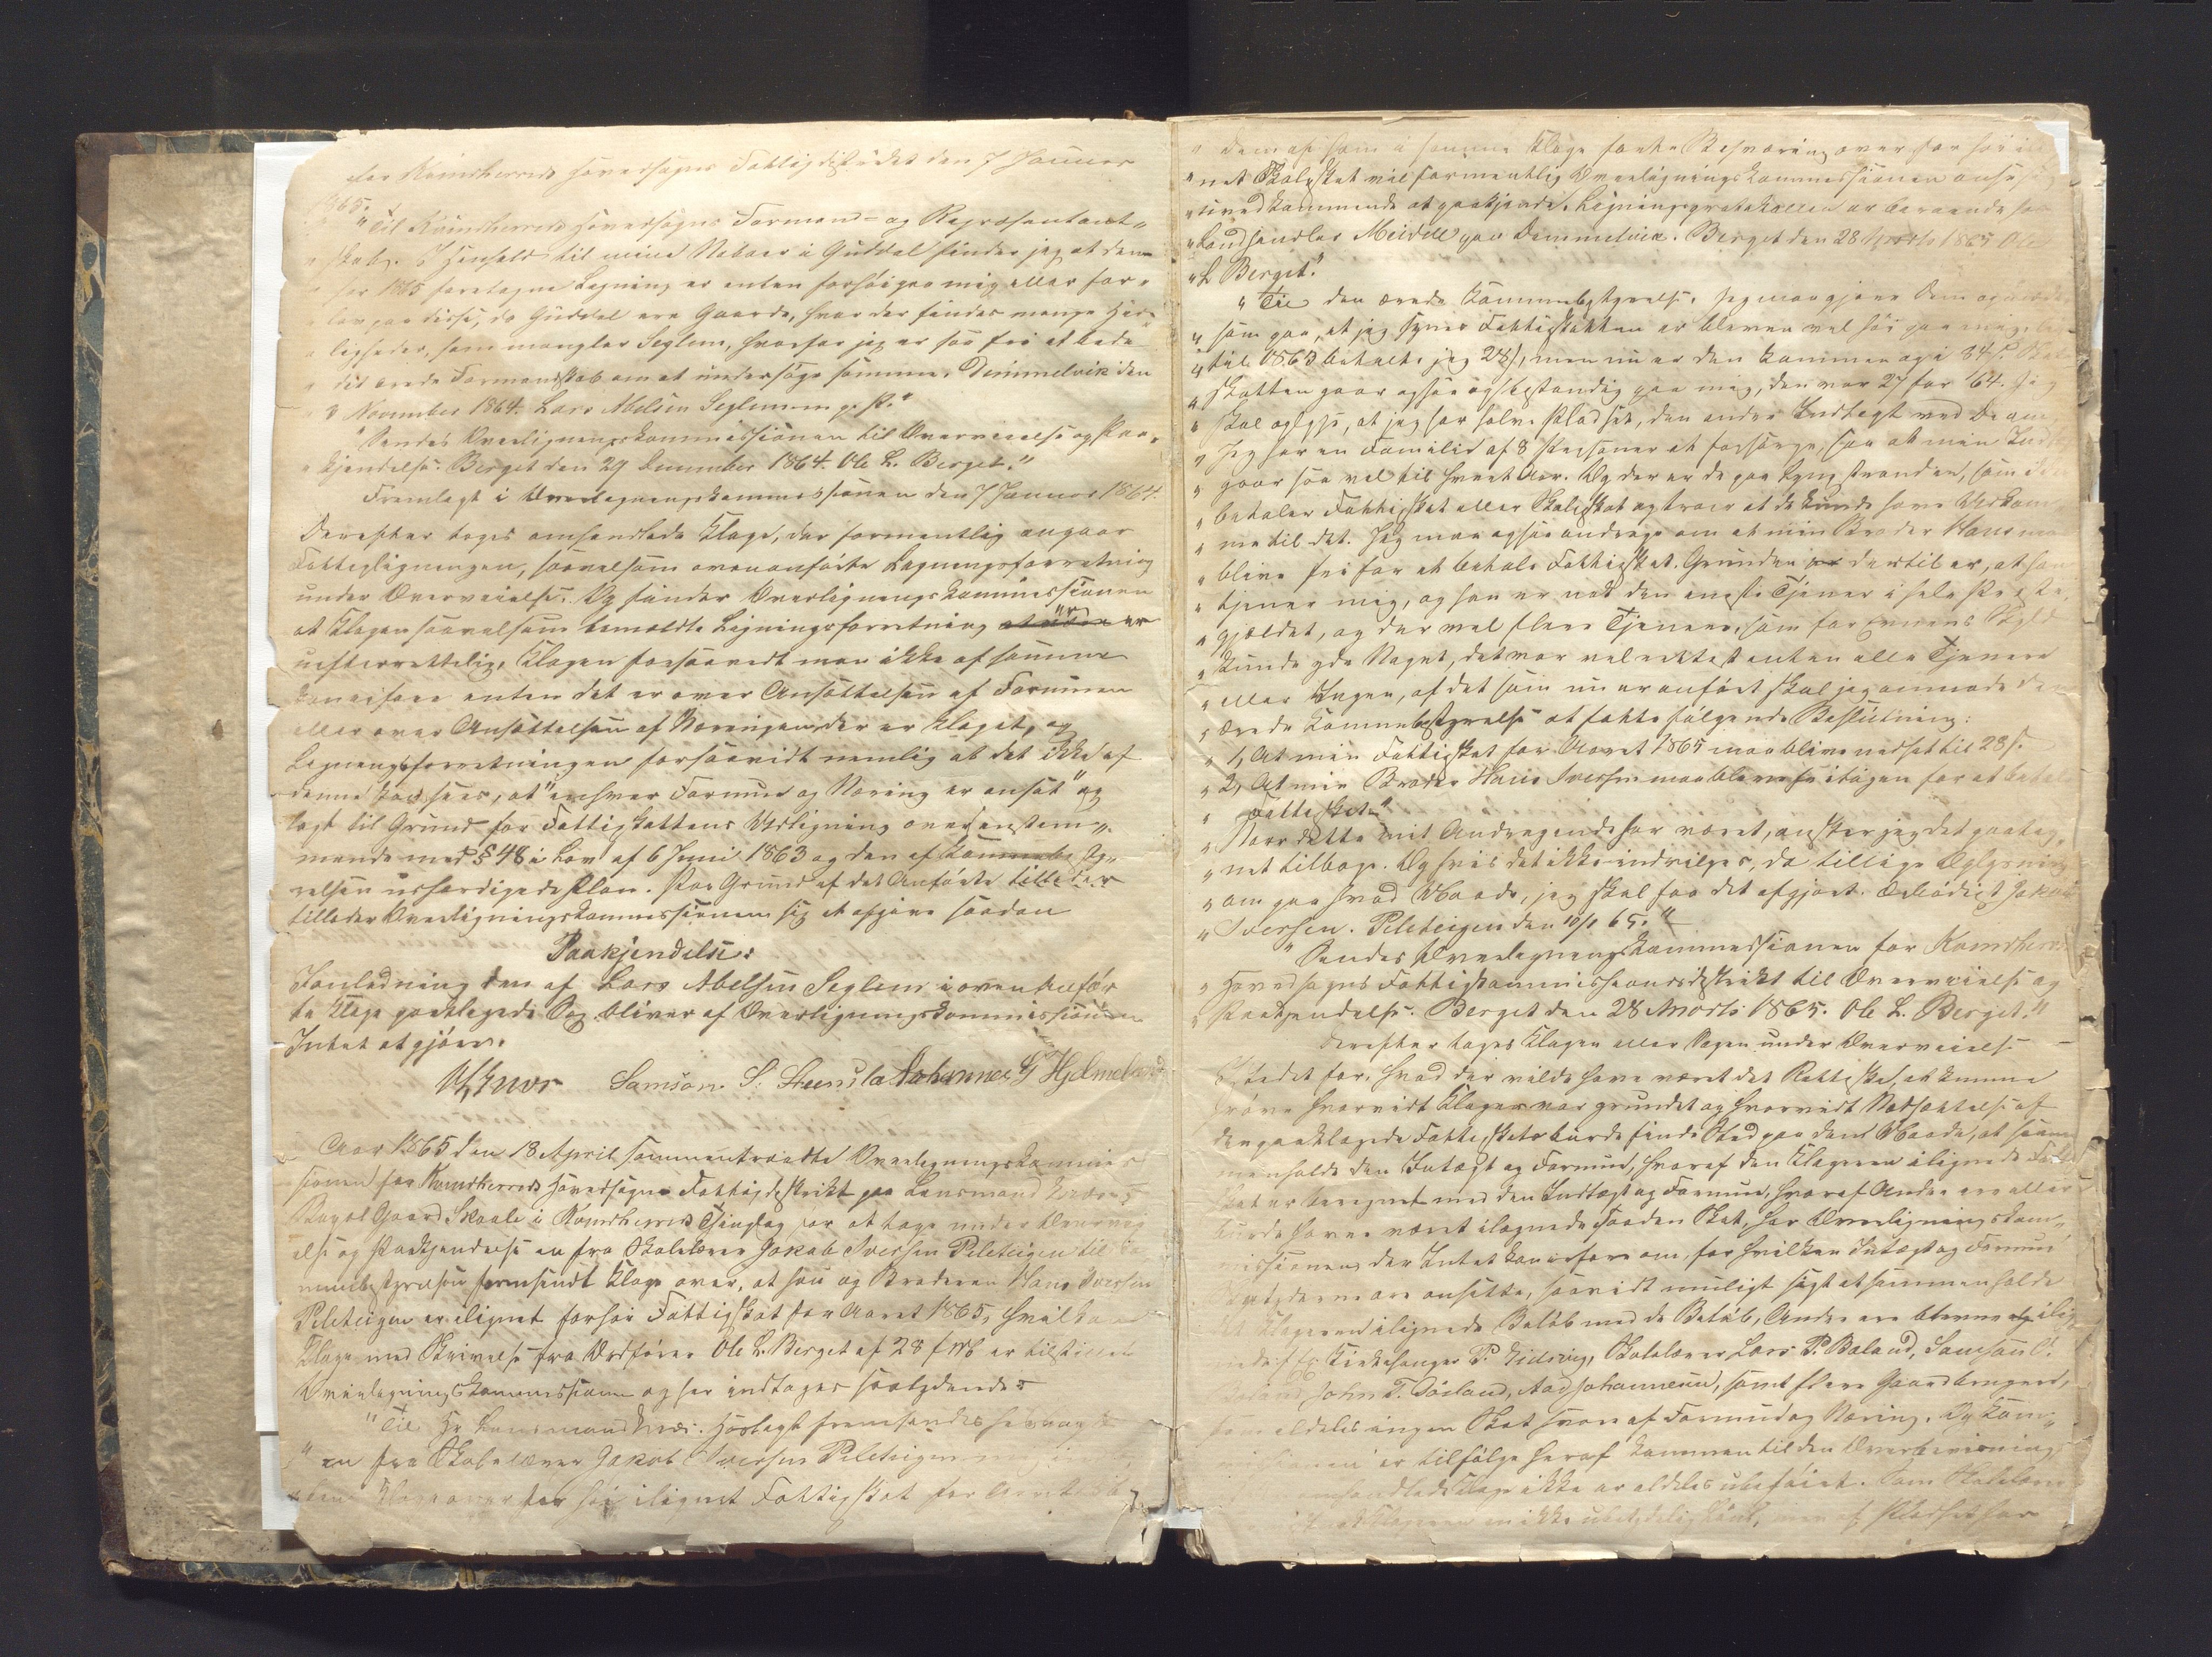 for Kvindherreds Hovedsogns Fattigdistrikt den 7 Januar
1865.
"Til Kvindherreds Hovedsogns Formand- og Repræsentant-
"skab. I Henhold til mine Naboer i Guddal finder jeg at den
"for 1865 foretagne Ligning er enten forhøi paa mig eller for
"lav paa disse, da Guddal ere Gaarde, hvor der findes mange Her-
"ligheder, som mangler Seglem, hvorfor jeg er saa fri at bede
"det ærede Formandskab om at undersøge samme. Dimmelvik den
"8 November 1864. Lars Abelsen Seglem m. p. P."
"Sendes Overligningskommissionen til Overveielse og Paa-
"kjendelse. Berget den 29 December 1864. Ole L. Berget."
Fremlagt i Overligningskommissionen den 7 Januar 1864.
Derefter toges omhandlede Klage, der formentlig angaar
Fattigligningen, saavelsom ovenanførte Ligningsforretning
under Overveielse. Og finder Overligningskommissionen
at Klagen saavelsom bemeldte Ligningsforretning er
uefterrettelig, Klagen forsaavidt man ikke af samme
kan erfare enten det er over Ansættelsen af Formuen
eller over Ansættelsen af Næringen der er klaget, og
Ligningsforretningen forsaavidt nemlig at det ikke af
denne kan sees, at "enhver Formue og Næring er ansat" og
lagt til Grund for Fattigskattens Udligning overensstem-
mende med § 48 i Lov af 6 Juni 1863 og den af Kommunebesty-
relsen udfærdigede Plan. Paa Grund af det Anførte
tillader Overligningskommissionen sig at afgive saadan
Paakjendelse:
I Anledning den af Lars Abelsen Seglem i ovenanfør-
te Klage paaklagede Sag bliver af Overligningskommissionen
Intet at gjøre.
Samson S. Steensla Johannes G Hjelmeland
Aar 1865 den 18 April sammentraadte Overligningskommis-
sionen for Kvindherreds Hovedsogns Fattigdistrikt paa Lensmand
Gaard Skaale i Kvindherreds Thinglag for at tage under Overvei-
else og Paakjendelse en fra Skolelærer Jakob Iversen Peleteigen til Ko-
munebestyrelsen fremsendt Klage over, at han og Broderen Hans Iversen
Peleteigen er ilignet forhøi Fattigskat for Aaret 1865, hvilken
Klage med Skrivelse fra Ordfører Ole L. Berget af 28 f. M. er tilstillet
Overligningskommissionen og her indtages saalydende:
"Til Hr. Lensmand Hoslagt fremsendes
"en fra Skolelærer Jakob Iversen Peleteigen
Klage over for høi ilignet Fattigskat for Aaret 1865
"dem af som i samme Klage førte Besværing over for høi ilig-
"net Skoleskat vil formentlig Overligningskommissionen anse sig
"uvedkommende at paakjende. Ligningsprotokollen er beroende hos
"Landhandler Meidell paa Dimmelvik. Berget den 28 Marts 1865 Ole
"L. Berget."
"Til den ærede Kommunebestyrelse. Jeg maa gjøre Dem opmærk-
"som paa, at jeg synes Fattigskatten er bleven vel høi paa mig,
"til 1863 betalte jeg 28 s, men nu er den kommen op i 84 s. Skole-
"skatten gaar ogsaa bestandig paa mig, den var 27 for 64. Jeg
"skal oplyse, at jeg har halve Pladset, den anden Indtægt
"Jeg har en Familie af 8 Personer at forsørge, saa at min Indtægt
"gaar saa vel til hvert Aar. Og der er de paa som ikke
"betaler Fattigskat eller Skoleskat og troer at de kunde have
"til det. Jeg maa ogsaa andrage om at min Broder Hans maa
"blive fri for at betale Fattigskat. Grunden dertil er, at han
"tjener mig, og han er nok den eneste Tjener i hele Præste-
"gjeldet, og der vel flere Tjenere, som for Evnens Skyld
"kunde yde Noget, det var vel rettest enten alle Tjenere
"eller Ingen, af det som nu er anført skal jeg anmode den
"ærede Kommunebestyrelse at fatte følgende Beslutning:
"1, At min Fattigskat for Aaret 1865 maa blive nedsat til 28 s.
"2, At min Broder Hans Iversen maa blive fritagen for at betale
"Fattigskat.
"Naar dette mit Andragende har været, ønsker jeg det paateg-
"net tilbage. Og hvis det ikke indvilges, da tillige Oplysning
"om paa hvad Maade, jeg skal faa det afgjort. Ærbødigst Jakob
"Iversen. Peleteigen den 10/1 65."
"Sendes Overligningskommissionen for Kvindherreds
"Hovedsogns Fattigkommissionsdistrikt til Overveielse og
"Paakjendelse. Berget den 28 Marts 1865. Ole L. Berget."
Derefter toges Klagen eller Sagen under Overveielse
Istedet for, hvad der vilde have været det Retteste, at kunne
prøve hvorvidt Klagen var grundet og hvorvidt Nedsættelse af
den paaklagede Fattigskat burde finde Sted paa den Maade, at sam-
menholde den Indtægt og Formue, hvoraf den Klageren ilignede Fattig-
skat er beregnet med den Indtægt og Formue, hvoraf Andre ere eller
burde have været ilignede saadan Skat, har Overligningskom-
missionen, der Intet kan erfare om, for hvilken Indtægt og Formue
ere ansatte, saavidt muligt søgt at sammenholde
det Klageren ilignede Beløb med de Beløb, Andre ere blevne ilig-
nede, f. Ex. Kirkesanger P. Skolelærer Lars P. Baland, Samson S.
John T. Aad Johannesen, samt flere Gaardbrugere,
som aldeles ingen Skat svare af Formue og Næring. Og Kom-
missionen er tilfølge heraf kommen til den Overbeviisning
omhandlede Klage ikke er aldeles ubeføiet. Som Skolelærer
Klageren en ikke ubetydelig Løn, men af Pladset har